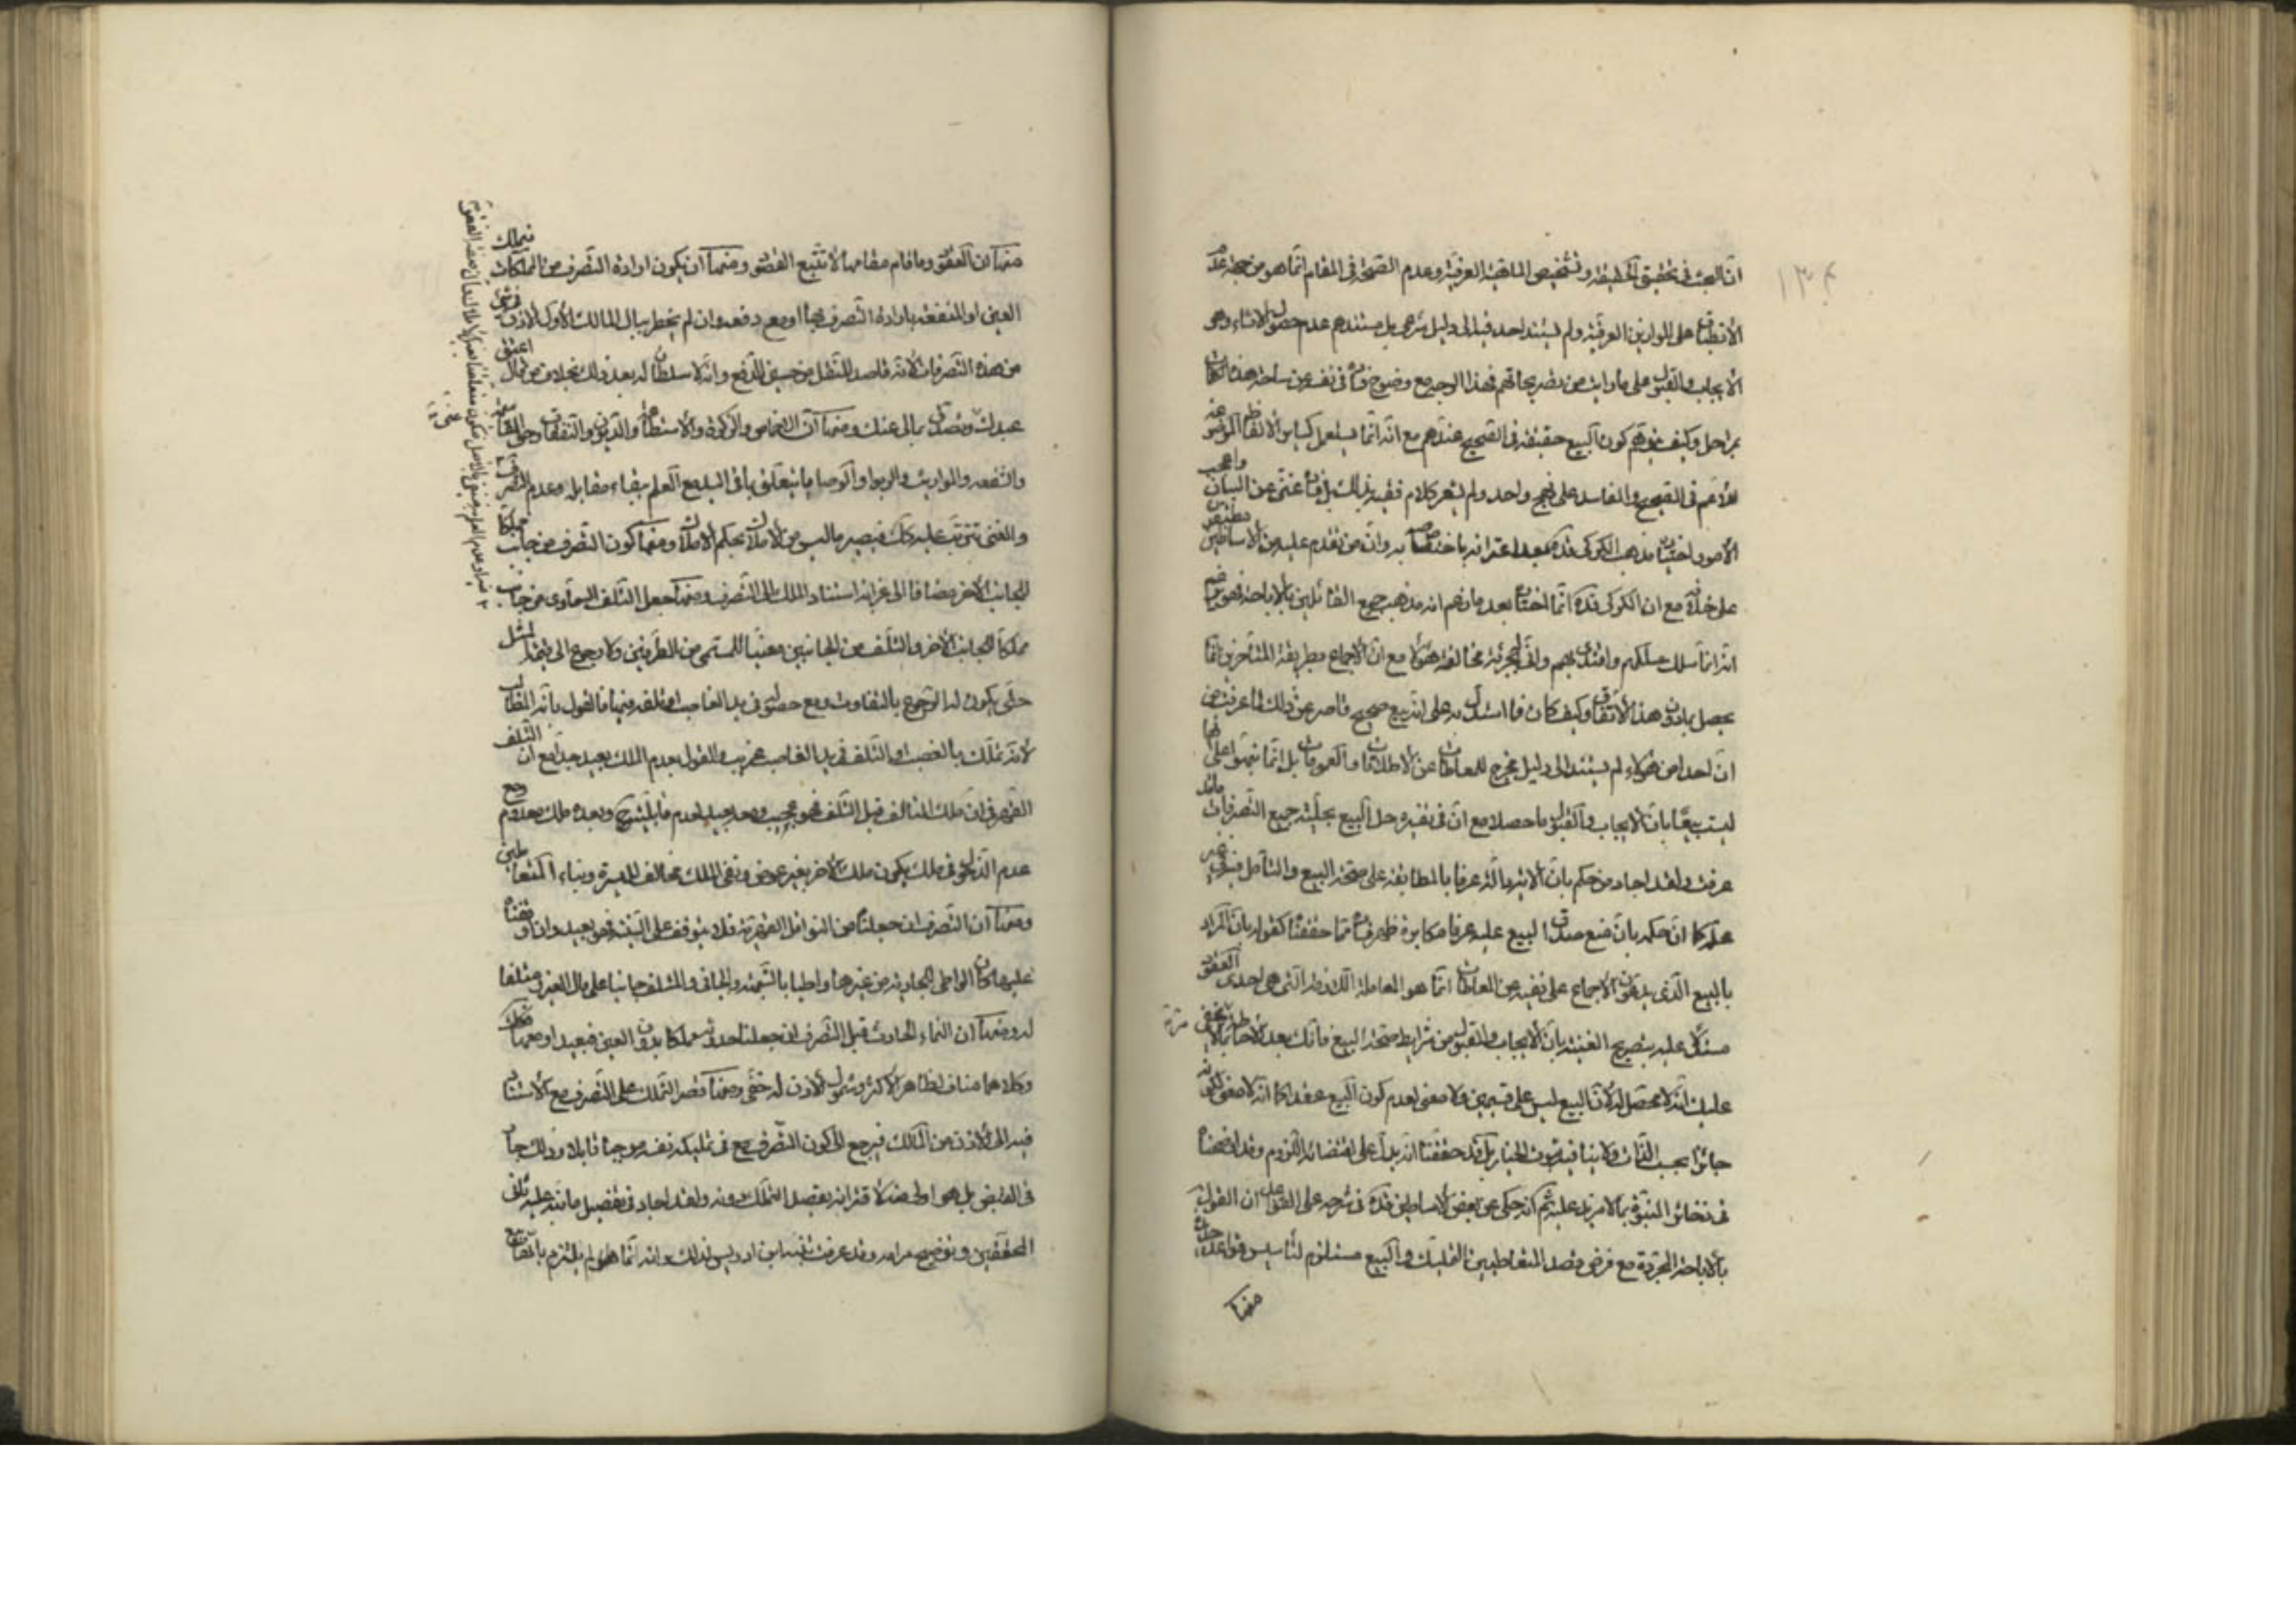 ١٣٤
ان البحث فى تحقيق الحقيقة وتشخيص الماهية العرفية وعدم الصحة فى المقام انما هو من جهة عدم
الانطباق على الموازين العرفية ولم يستند احد الى دليل شرعى بل مستندهم عدم حصول الانشاء وهو
الايجاب والقبول على ما رايت من تصريحاتهم فهذا الوجه مع وضوح فى نفسه عن ساحة هذه
بمراحل وكيف يتوهم كون البيع حقيقة فى الصحيح عندهم مع انه انما يستعمل كساير الالفاظ الموضوعة
للاعم فى الصحيح والفاسد على نهج واحد ولم يشعر كلام فقيه بذلك بل غنى عن البيان واعجب
الامور اختيار مذهب الكركى قده بعد اعترافه باختصاصه به وان من تقدم عليه من الاساطين مطبقين
على خلافه مع ان الكركى قده انما اختاره بعد ما زعم انه مذهب جميع القائلين بالاباحة فهو
انه انما سلك مسلكهم واقتدى بهم مخالفة هؤلاء مع ان الاجماع بطريقة المتاخرين انما
يحصل بما دون هذا الاتفاق وكيف كان فما استدل به على انه بيع صحيح قاصر عن ذلك لما عرفت من
ان احدا من هؤلاء لم يستند الى دليل مخرج للمعاطاة عن الاطلاقات والعمومات بل انما على انها
ليست بيعا بان الايجاب والقبول ما حصلا مع ان فى نفيه وحل البيع بحلية جميع التصرفات ما قد
عرفت ولقد اجاد من حكم بان الاية دالة عرفا بالمطابقة على صحة البيع والتامل فيه فى غير
محله كما ان حكمه بان منع صدق البيع عليه عرفا مكابرة مما حققناه كقوله بان المراد
بالبيع الذى يدعون الاجماع على نفيه عن المعاطاة انما هو المعاملة اللازمة التى هى احدى العقود
مستدلا عليه بتصريح الغنية بان الايجاب والقبول من شرايط صحة البيع فانك بعد الاحاطة لا يخفى
عليك انه لا محصل له لان البيع ليس على قسمين ولا معنى لعدم كون البيع عقدا كما انه لا معنى لكونه
جائزا بحسب الذات ولا ينافيه ثبوت الخيار بل قد حققنا انه على اقتضائه اللزوم وقد اوضحنا
فى بما لا مزيد عليه ثم انه حكى عن بعض الاساطين قده فى شرحه على القواعد ان القول
بالاباحة المجردة مع فرض قصد المتعاطيين التمليك والبيع مستلزم لتاسيس قواعد جديدة
منها
منها ان العقود وما قام مقامها لا تتبع القصود ومنها ان يكون ارادة التصرف من المملكات فيملك
العين او المنفعة بارادة التصرف بها او معه دفعة وان لم يخطر ببال المالك الاول الاذن فى شئ
من هذه التصرفات لانه قاصد للنقل من حين الدفع وانه لا سلطان له بعد ذلك بخلاف من قال اعتق
عبدك وتصدق بمالى عنك ومنها ان الاخماس والزكوة والاستطاعة والديون والنفقات وحق المقاسمة
والشفعة والمواريث والربوا والوصايا يتعلق بما فى اليد مع العلم ببقاء مقابله وعدم التصرف
والغنى تترتب عليه كك فيصير ما ليس من الاملاك بحكم الاملاك ومنها كون التصرف من جانب مملكا
للجانب الاخر مضافا الى غرابة استناد الملك الى التصرف ومنها جعل التلف السماوى من جانب
مملكا للجانب الاخر والتلف من الجانبين معينا للمسمى من الطرفين ولا رجوع الى قيمة المثل
حتى يكون له الرجوع بالتفاوت ومع حصوله فى يد الغاصب او تلفه فيها فالقول بانه المطالب
لانه تملك بالغصب او التلف فى يد الغاصب غريب والقول بعدم الملك بعيد جدا مع ان التلف
القهرى ان ملك التالف قبل التلف فهو عجيب ومعه بعيد لعدم قابليته وبعده ملك معدوم ومع
عدم الدخول فى ملك يكون ملك الاخر بغير عوض ونفى الملك مخالف للسيرة وبناء المتعاطيين
ومنها ان التصرف ان جعلناه من النواقل القهرية فلا يتوقف على النية فهو بعيد وان اوقفناه
عليها كان الواطى للجارية من غيرها واطيا بالشبهة والجانى والمتلف جانيا على مال الغير ومتلفا
له ومنها ان النماء الحادث قبل التصرف ان جعلنا حدوثه مملكا بدون العين فبعيد او معها فكذلك
وكلاهما مناف لظاهر الاكثر وشمول الاذن له خفى ومنها قصر التملك على التصرف مع الاستناد
فيه الى الاذن من المالك فيرجع الى كون المتصرف فى تمليكه نفسه موجبا قابلا وذلك جار
فى القابض بل هو اولى منه لاقترانه بقصد التملك دونه ولقد اجاد فى تفصيل ما نبه عليه ثانى
المحققين وتوضيح مرامه وقد عرفت ابن ادريس لذلك وانه انما لم يلتزم